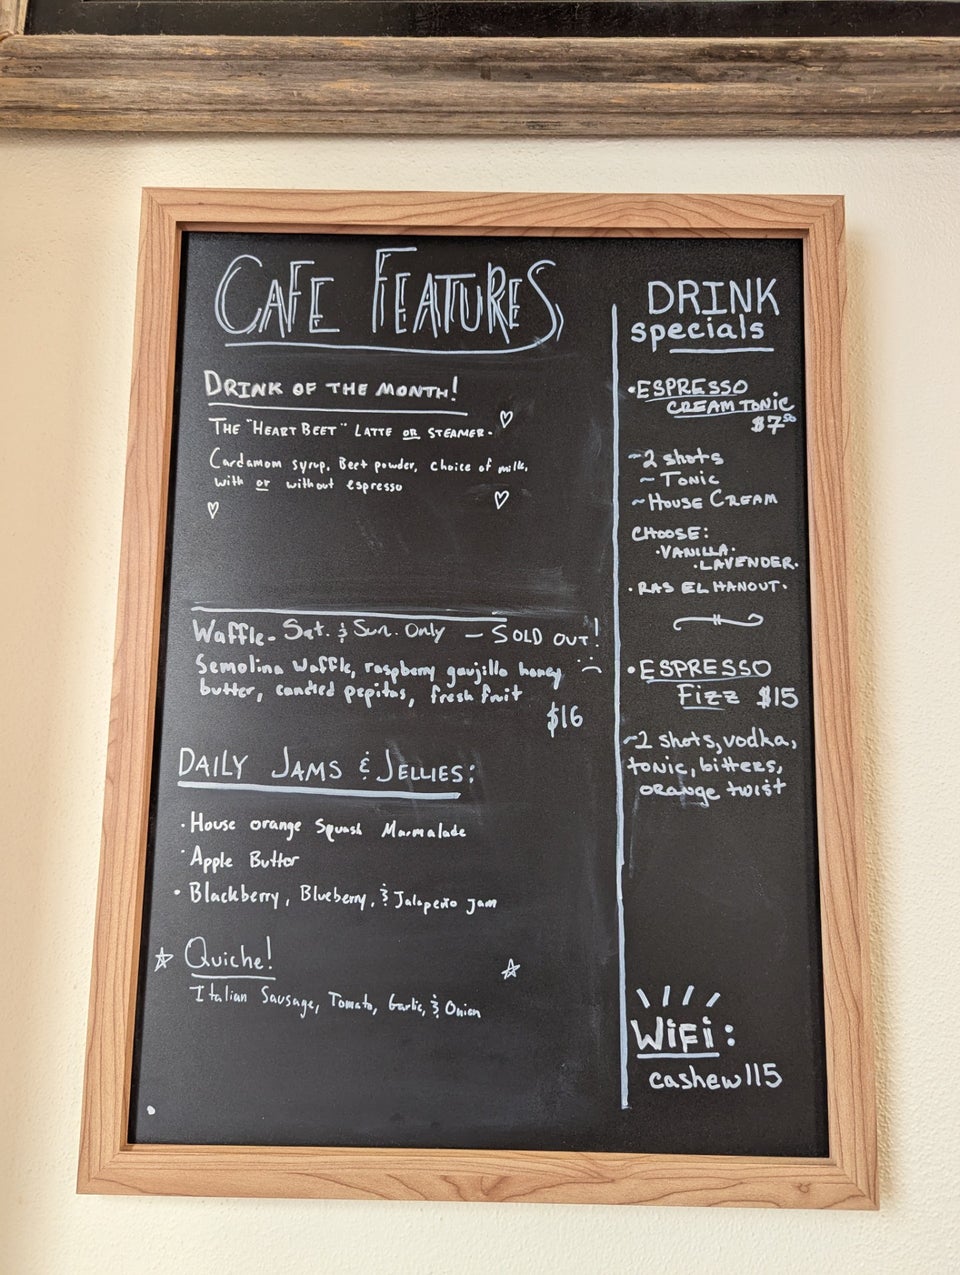 CAFE FEATURES
DRINK OF THE MONTH!
THE "HEART BEET" LATTE OR STEAMER.
Cardamom syrup, Beet powder, choice of milk,
with or without espresso
Waffle - Sat. & Sun. Only - SOLD OUT!
Semolina waffle, raspberry gaujillo honey
butter, candied pepitas, fresh fruit
$16
DAILY JAMS & JELLIES:
· House orange Squash Marmalade
· Apple Butter
· Blackberry, Blueberry, & Jalapeño jam
Quiche!
Italian Sausage, Tomato, Garlic, & Onion
DRINK
specials
· ESPRESSO
CREAM TONIC
$7⁵⁰
~2 shots
~ TONIC
~HOUSE CREAM
CHOOSE:
· VANILLA ·
· LAVENDER ·
· RAS EL HANOUT ·
· ESPRESSO
FIZZ $15
~2 shots, vodka,
tonic, bitters,
orange twist
WiFi:
cashew115